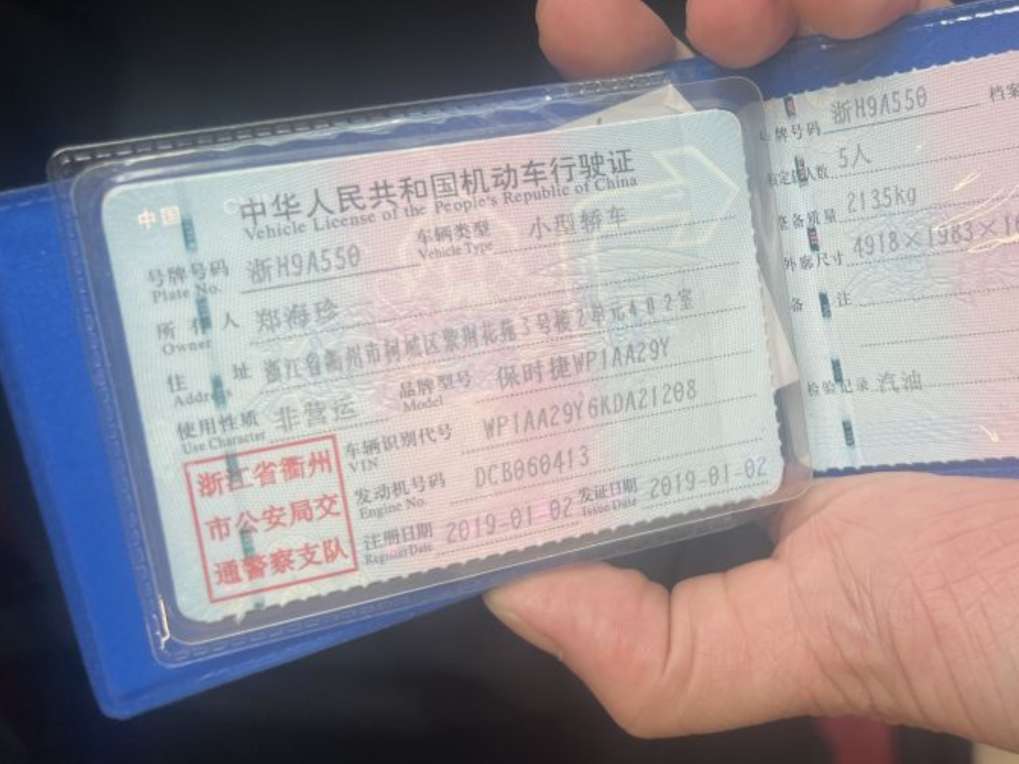 中国
中华人民共和国机动车行驶证
Vehicle License of the People's Republic of China
号牌号码 浙H9A550 车辆类型 小型轿车
Plate No. Vehicle Type
所有人 郑海珍
Owner
住址 浙江省衢州市柯城区紫荆花苑3号楼2单元402室
Address
使用性质 非营运 品牌型号 保时捷WP1AA29Y
Use Character Model
浙江省衢州
市公安局交
通警察支队
车辆识别代号 WP1AA29Y6KDA21208
VIN
发动机号码 DCB060413
Engine No.
注册日期 2019-01-02 发证日期 2019-01-02
Register Date Issue Date
号牌号码 浙H9A550 档案
核定载人数 5人
整备质量 2135kg
外廓尺寸 4918×1983×16
备注
检验记录 汽油